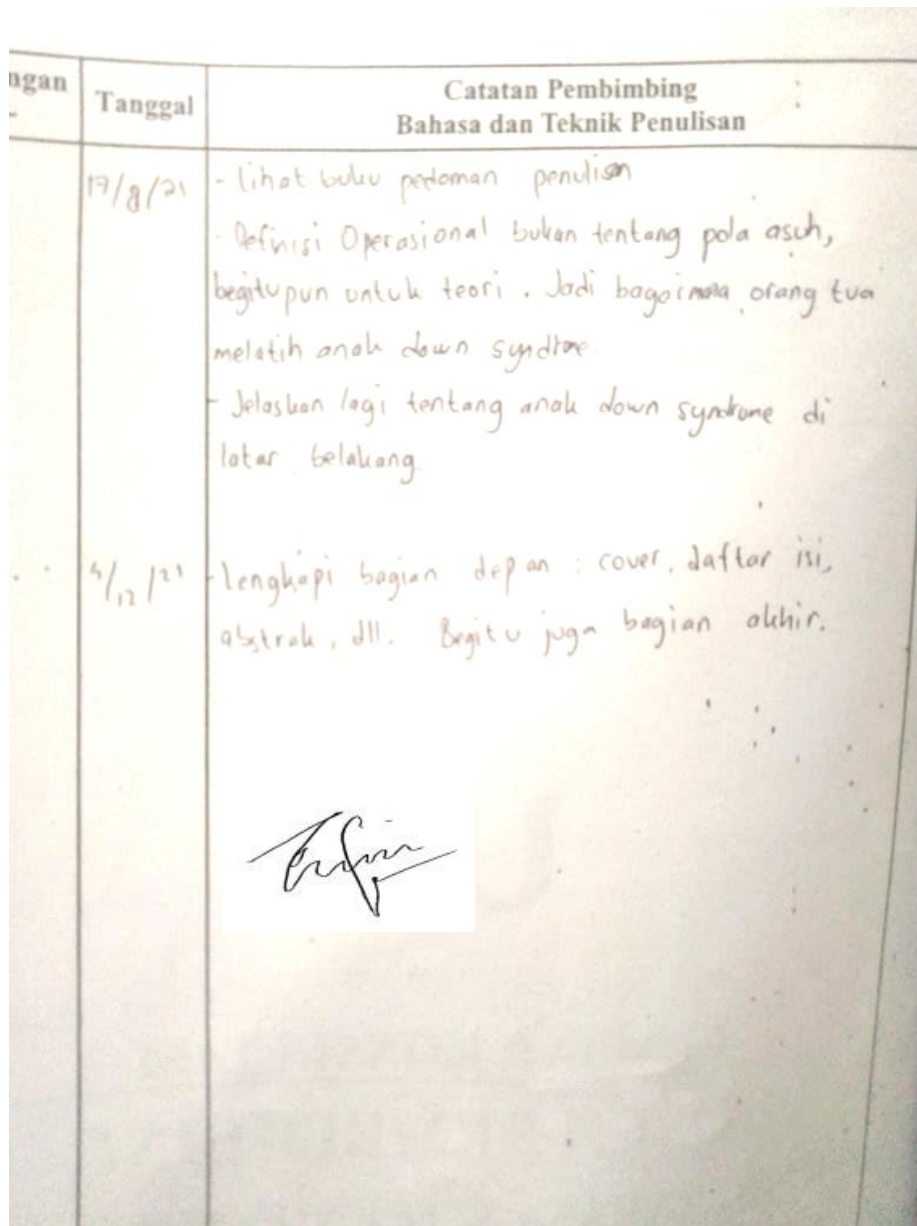 ngan
Tanggal
Catatan Pembimbing
Bahasa dan Teknik Penulisan
17/8/21
- lihat buku pedoman penulisan
- Definisi Operasional bukan tentang pola asuh,
begitupun untuk teori. Jadi bagaimana orang tua
melatih anak down syndrome
- Jelaskan lagi tentang anak down syndrome di
latar belakang
4/12/21
- lengkapi bagian depan : cover, daftar isi,
abstrak, dll. Begitu juga bagian akhir.